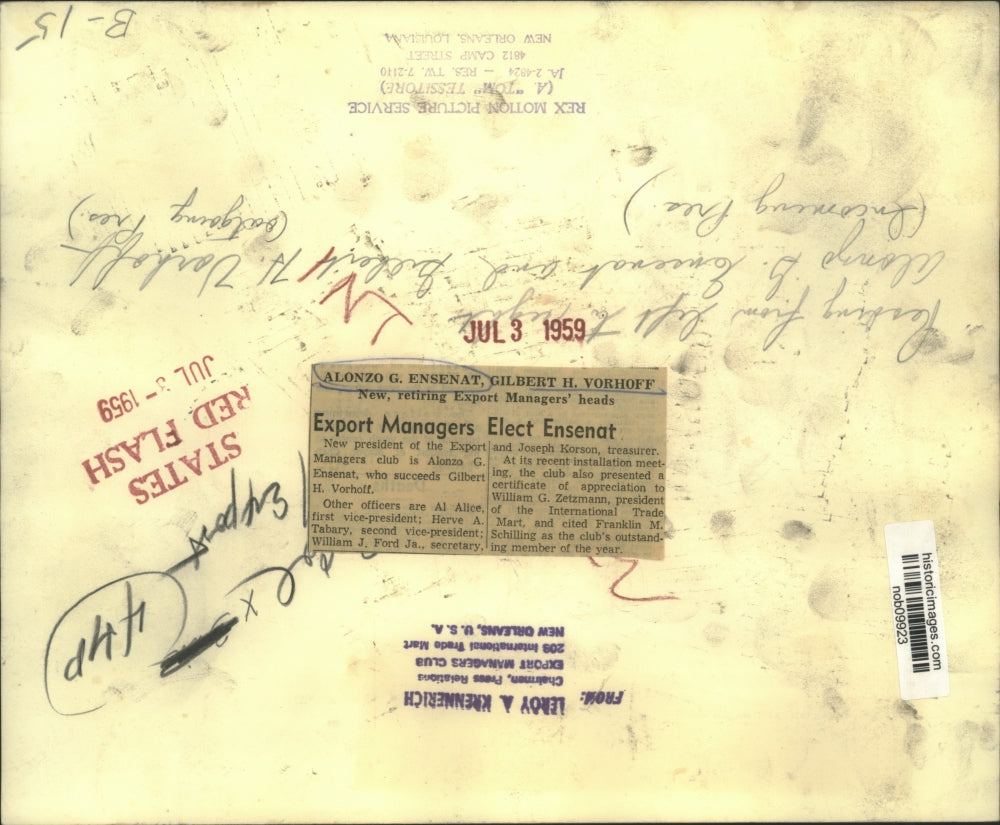 B-15
REX MOTION PICTURE SERVICE
(A. "TOM" TESSITORE)
JA. 2-4824 — RES. TW. 7-2110
4812 CAMP STREET
NEW ORLEANS, LOUISIANA
Reading from left to right
Alonzo G. Ensenat and Gilbert H. Vorhoff
(Incoming Pres.) (Outgoing Pres.)
JUL 3 1959
STATES
RED FLASH
JUL 3 - 1959
ALONZO G. ENSENAT, GILBERT H. VORHOFF
New, retiring Export Managers' heads
Export Managers Elect Ensenat
New president of the Export
Managers club is Alonzo G.
Ensenat, who succeeds Gilbert
H. Vorhoff.
Other officers are Al Alice,
first vice-president; Herve A.
Tabary, second vice-president;
William J. Ford Ja., secretary,
and Joseph Korson, treasurer.
At its recent installation meet-
ing, the club also presented a
certificate of appreciation to
William G. Zetzmann, president
of the International Trade
Mart, and cited Franklin M.
Schilling as the club's outstand-
ing member of the year.
Export
44P
FROM:
LEROY A KRENNERICH
Chairman, Press Relations
EXPORT MANAGERS CLUB
209 International Trade Mart
NEW ORLEANS, U. S. A.
historicimages.com
nob09923